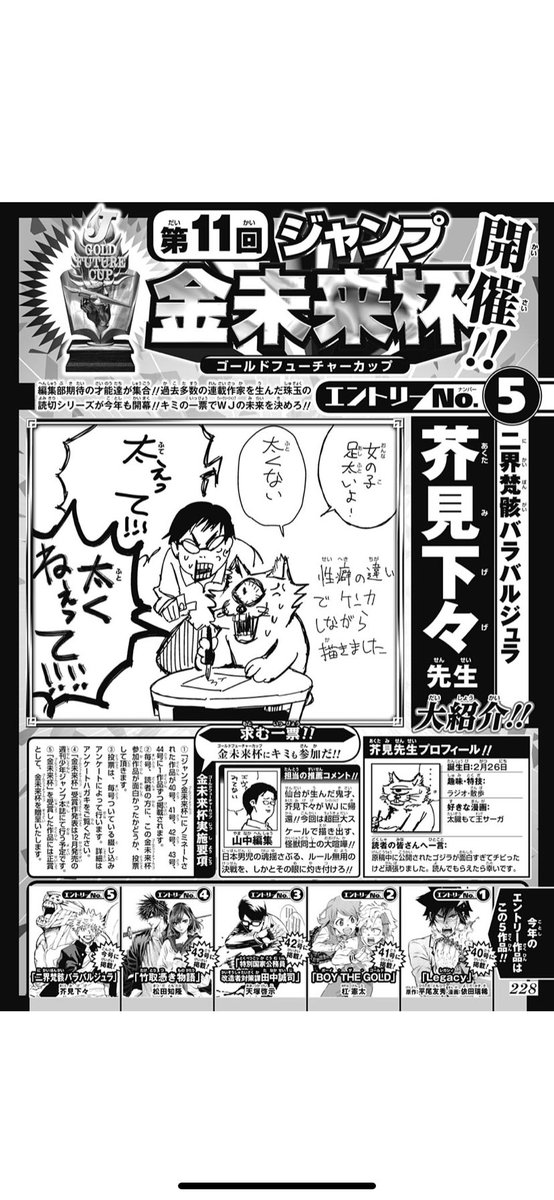 J
GOLD
FUTURE
CUP
第11回
ジャンプ
金未来杯
開催!!
ゴールドフューチャーカップ
編集部期待の才能達が集合!!過去多数の連載作家を生んだ珠玉の
読切シリーズが今年も開幕!!キミの一票でWJの未来を決めろ!!
エントリーNo.5
二界梵骸バラバルジュラ
芥見下々先生
大紹介!!
女の子
足太いよ!
太くない
太えっ
て!!!
太く
ねぇって!!!
性癖の違い
でケンカ
しながら
描きました
芥見先生プロフィール!!
誕生日:2月26日
趣味・特技:
ラジオ・散歩
好きな漫画:
太臓もて王サーガ
読者の皆さんへ一言:
原稿中に公開されたゴジラが面白すぎてチビった
けど頑張りました。読んでもらえたら幸いです。
求む一票!!
ゴールドフューチャーカップ
金未来杯にキミも参加だ!!
担当の推薦コメント!!
山中編集
仙台が生んだ鬼才、
芥見下々がWJに帰
還!!今回は超巨大ス
ケールで描き出す、
怪獣同士の大喧嘩!!
日本男児の魂揺さぶる、ルール無用の
決戦を、しかとその眼に灼き付けろ!!
金未来杯実施要項
①「ジャンプ金未来杯」にノミネートさ
れた作品が40号、41号、42号、43号、
44号に1作品ずつ掲載されます。
②毎号、読者の方に、この金未来杯
参加作品が面白かったかどうか、投票
して頂きます。
③投票は、毎号ついている綴じ込み
アンケートによって行います。詳細は
アンケートハガキをご覧ください。
④「金未来杯」受賞作発表は12月発売の
週刊少年ジャンプ本誌にて行う予定です。
⑤「金未来杯」を受賞した作品には正賞
として、金未来杯を贈呈いたします。
今年の
エントリー作品は
この5作品!!
エントリーNo.1
40号に掲載!
「Legacy」
原作:平尾友秀 漫画:依田瑞稀
エントリーNo.2
41号に掲載!
「BOY THE GOLD」
杠憲太
エントリーNo.3
42号に掲載!
「特別国家公務員
改造者対策担当 田中誠司」
天塚啓示
エントリーNo.4
43号に掲載!
「竹取憑き物語」
松田知隆
エントリーNo.5
今号に掲載!
「二界梵骸バラバルジュラ」
芥見下々
228